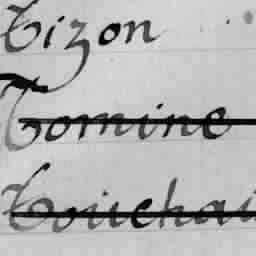 Tizon
Tomine
Touchai